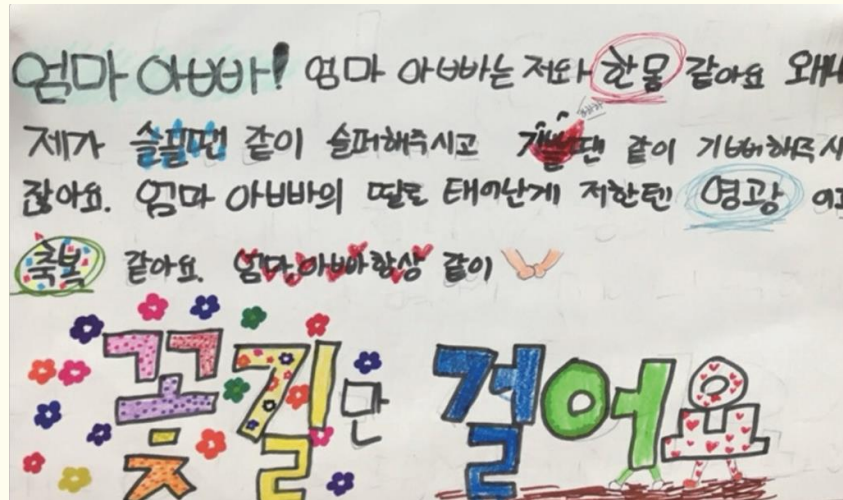 엄마 아빠! 엄마 아빠는 저와 한몸 같아요 왜냐
제가 슬플땐 같이 슬퍼해주시고 기쁠땐 같이 기뻐해주시
잖아요. 엄마 아빠의 딸로 태어난게 저한텐 영광 이고
축복 같아요. 엄마,아빠 항상 같이
꽃길만 걸어요